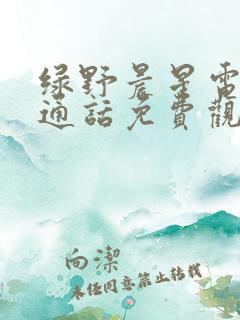 绿野晨星電
通話免費觀
向潔
未经同意禁止转载